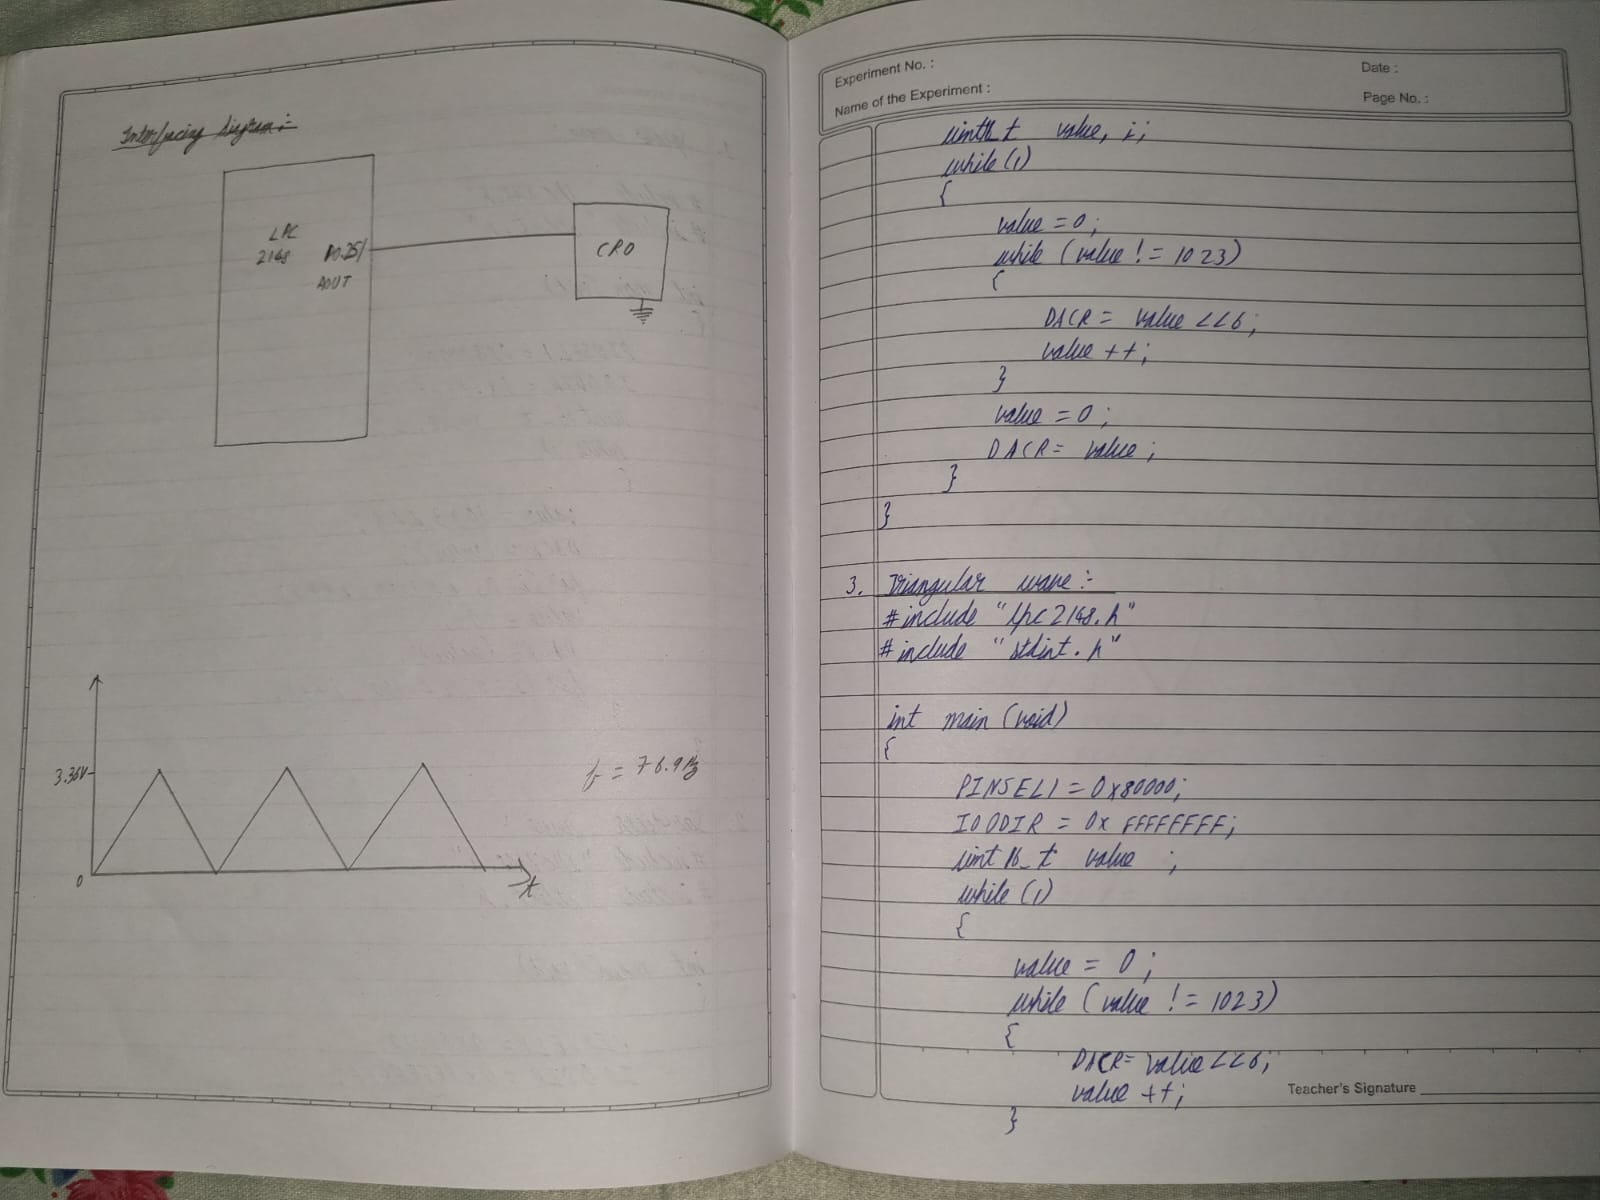 Interfacing Diagram :-
LPC
2148
P0.25/
AOUT
CRO
3.36V
f = 76.9Hz
0
t
Experiment No. :
Date :
Name of the Experiment :
Page No. :
uint16_t value, i;
while (1)
{
value = 0;
while (value != 1023)
{
DACR = value <<6;
value ++;
}
value = 0;
DACR = value;
}
}
3. Triangular wave :-
#include "lpc2148.h"
#include "stdint.h"
int main (void)
{
PINSEL1 = 0x80000;
IO0DIR = 0x FFFFFFFF;
uint16_t value ;
while (1)
{
value = 0;
while (value != 1023)
{
DACR = value <<6;
value ++;
}
Teacher's Signature